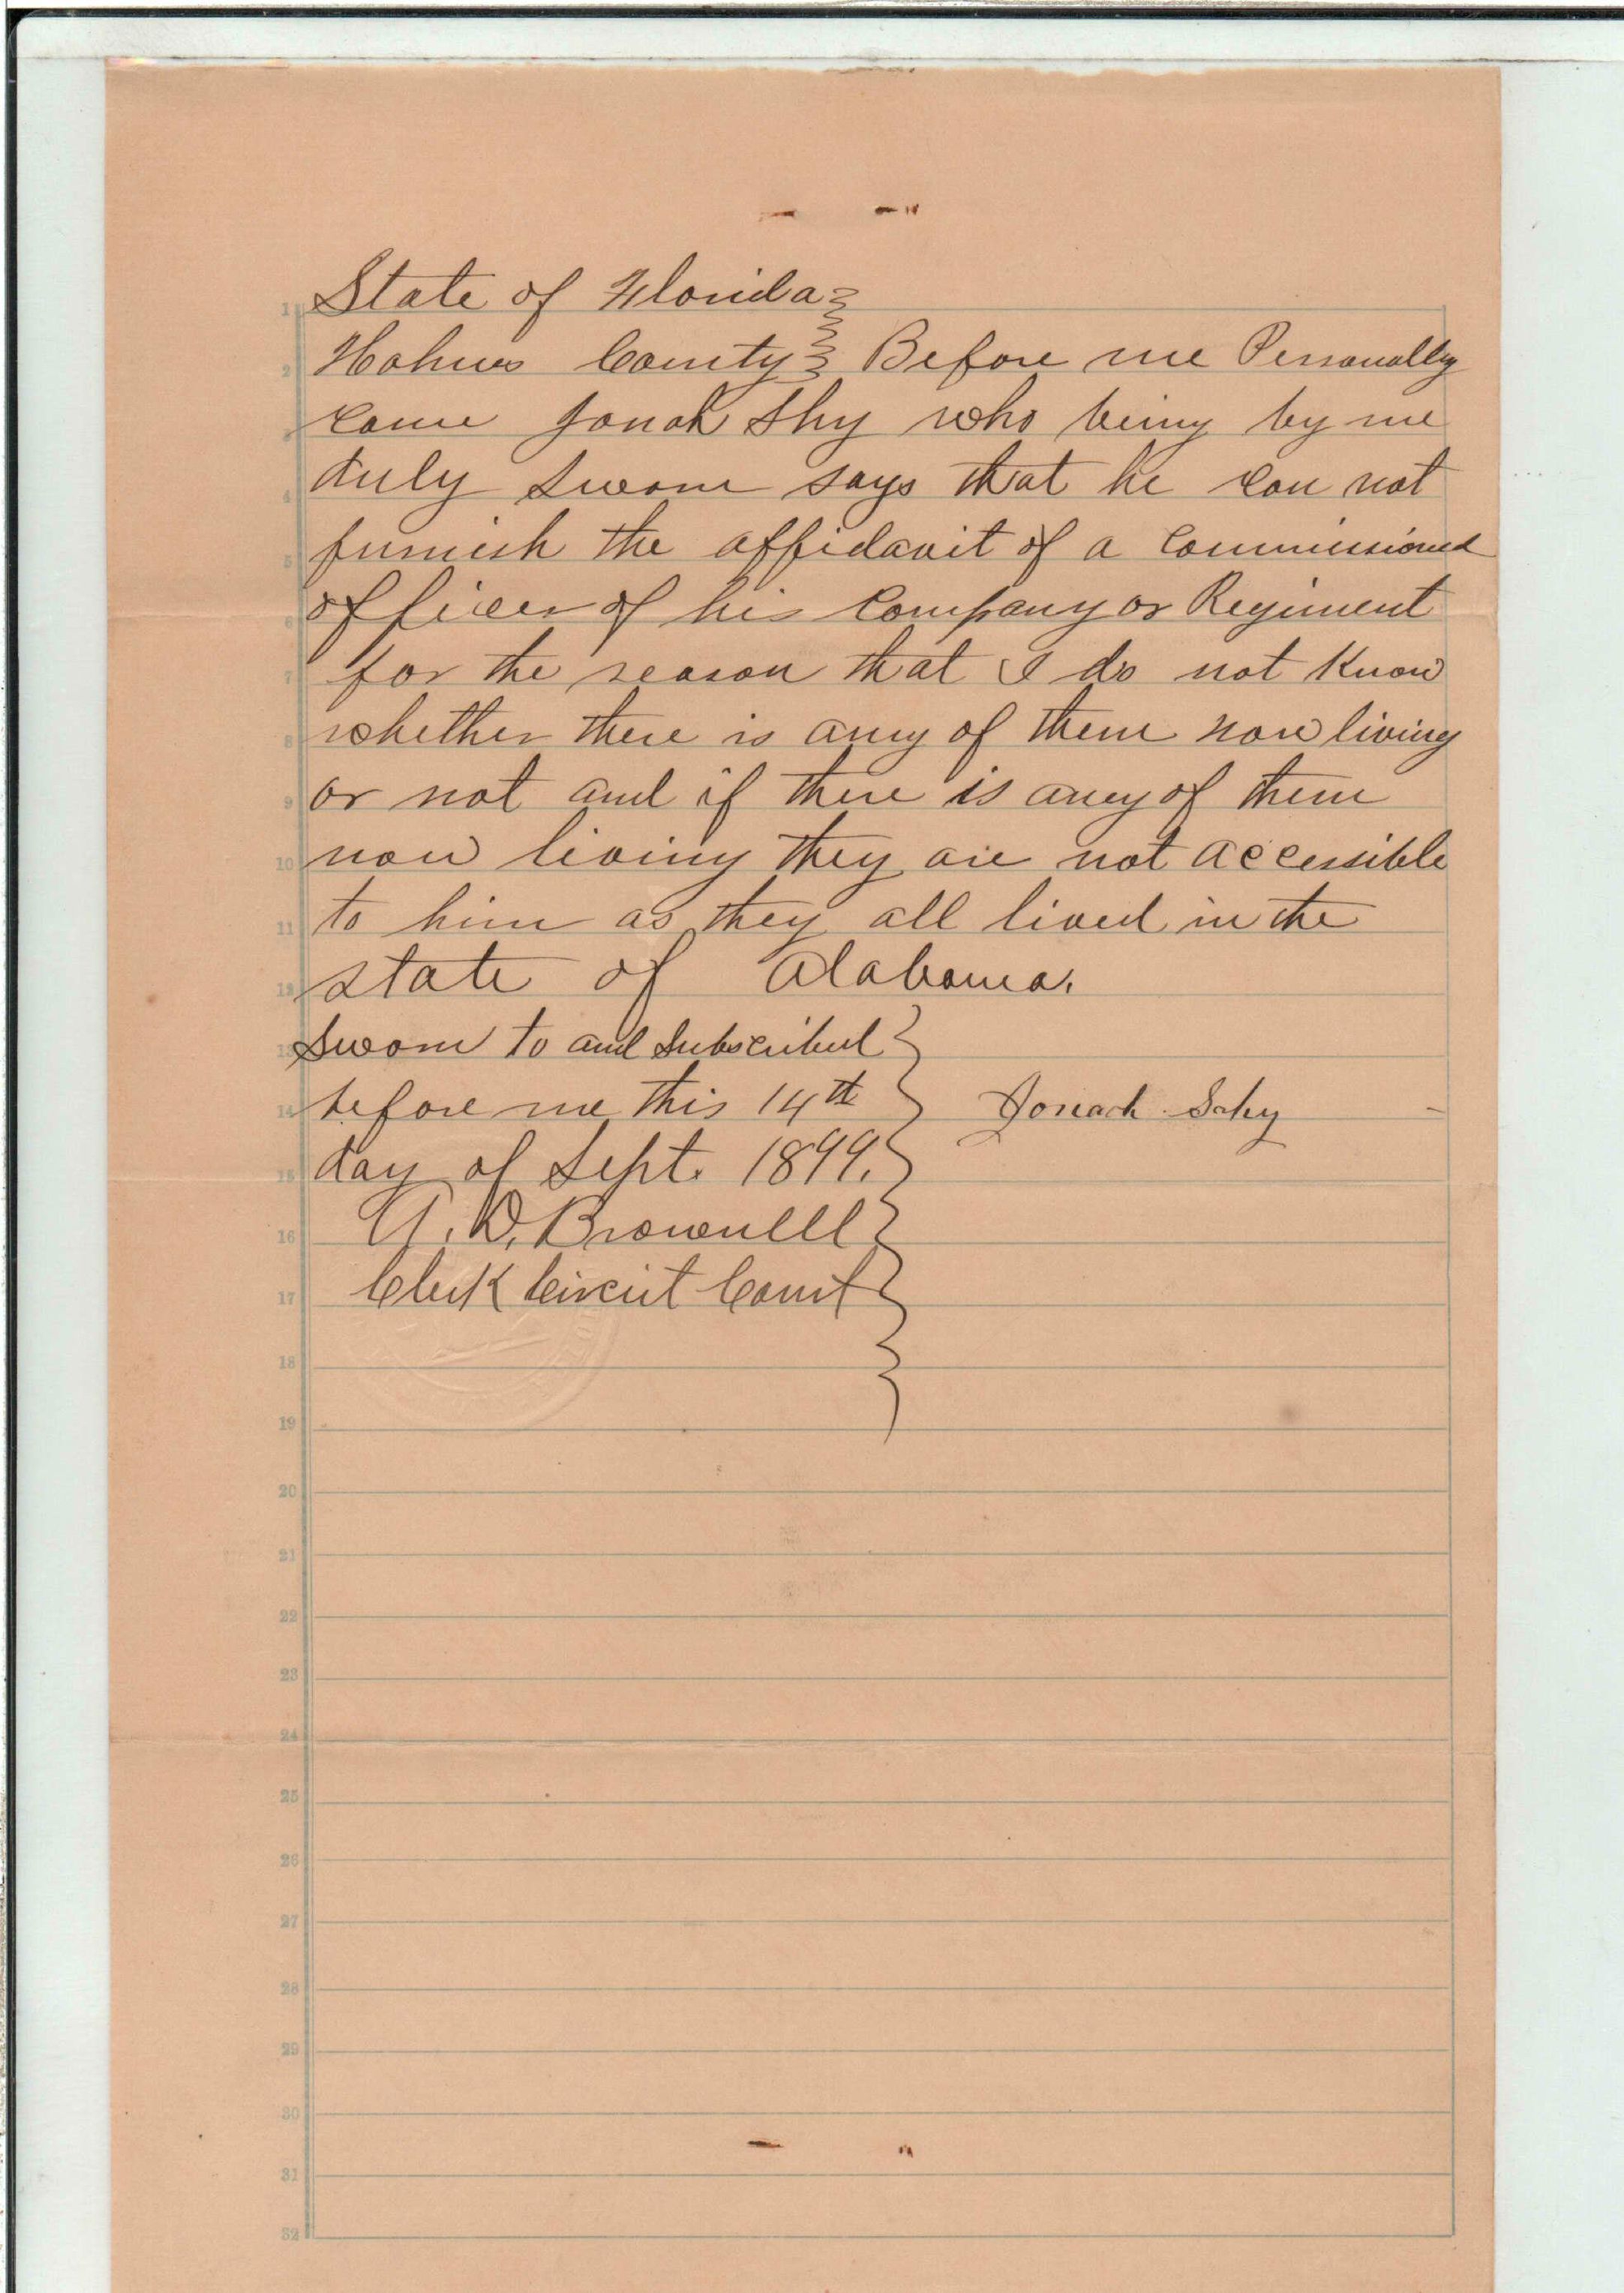 State of Florida
Holmes County Before me Personally
came Jonah Shy who being by me
duly sworn says that he can not
furnish the affidavit of a Commissioned
officer of his Company or Regiment
for the reason that I do not Know
whether there is any of them now living
or not and if there is any of them
now living they are not accessible
to him as they all lived in the
state of Alabama.
Sworn to and Subscribed
before me this 14th
day of Sept. 1899.
Jonach Schy
A. D. Brownell
Clerk Circuit Court
1
2
3
4
5
6
7
8
9
10
11
12
13
14
15
16
17
18
19
20
21
22
23
24
25
26
27
28
29
30
31
32